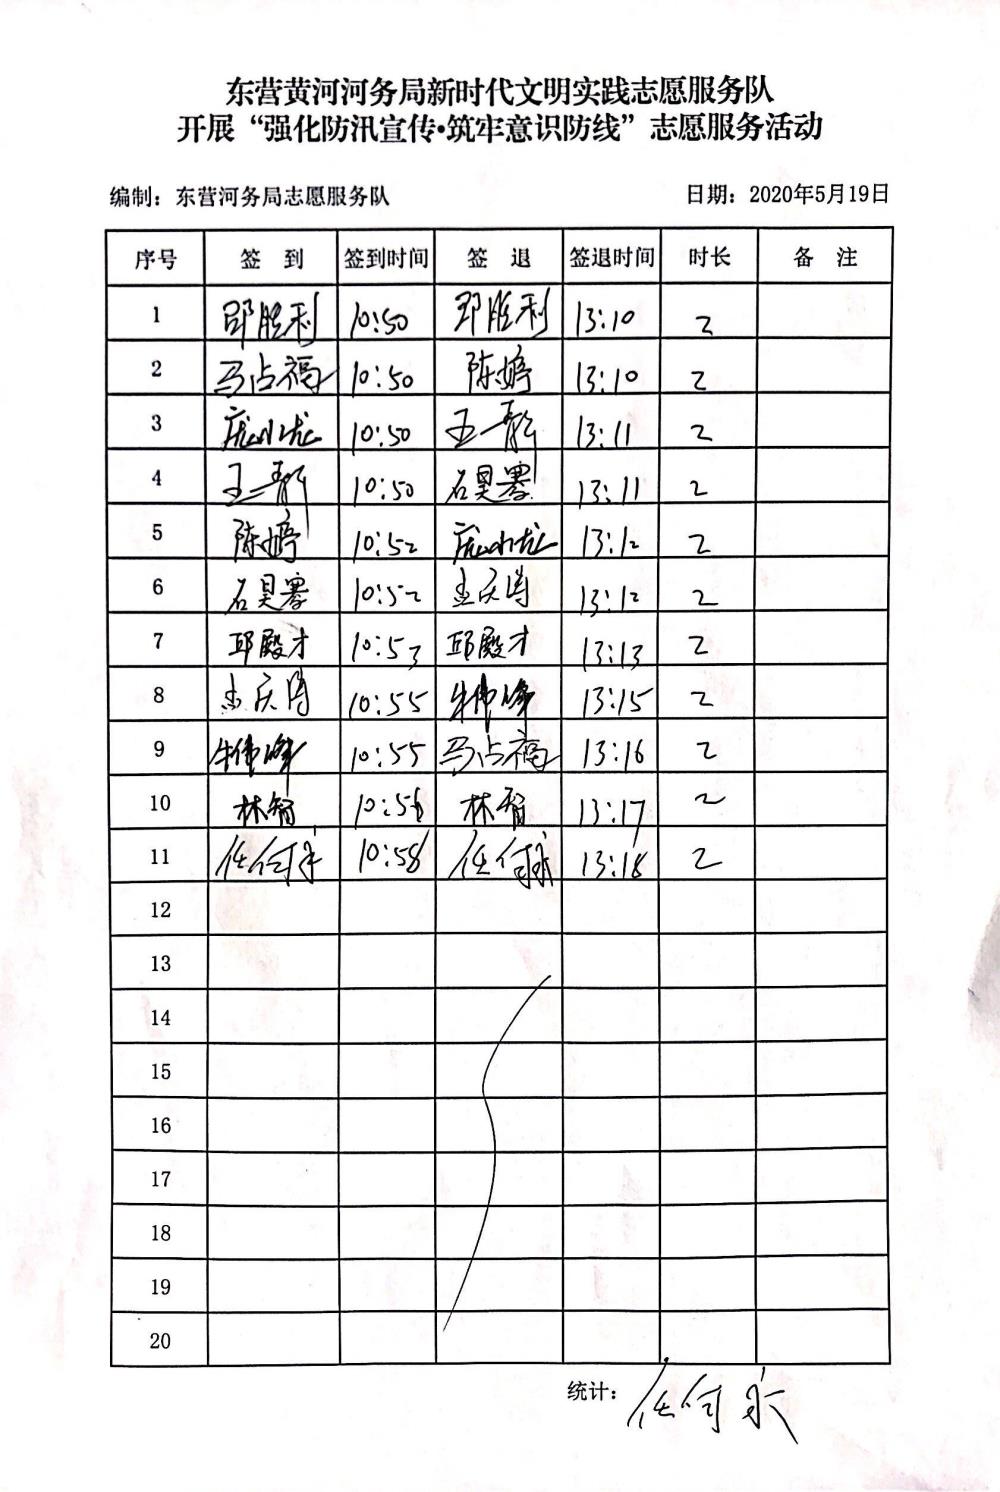 东营黄河河务局新时代文明实践志愿服务队
开展“强化防汛宣传·筑牢意识防线”志愿服务活动
编制：东营河务局志愿服务队 日期：2020年5月19日
序号 签 到 签到时间 签 退 签退时间 时长 备 注
1 邵胜利 10:50 邵胜利 13:10 2
2 马占福 10:50 陈婷 13:10 2
3 10:50 王一静 13:11 2
4 王一静 10:50 石昊騫 13:11 2
5 陈婷 10:52 13:12 2
6 石昊騫 10:52 孟庆涛 13:12 2
7 邱殿才 10:53 邱殿才 13:13 2
8 孟庆涛 10:55 牛伟峰 13:15 2
9 牛伟峰 10:55 马占福 13:16 2
10 林智 10:56 林智 13:17 2
11 任付永 10:58 任付永 13:18 2
12
13
14
15
16
17
18
19
20
统计：任付永